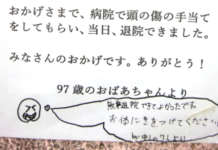 おかげさまで、病院で頭の傷の手当て
をしてもらい、当日、退院できました。
みなさんのおかげです。ありがとう！
97歳のおばあちゃんより
無事退院できてよかったです。
お体にきをつけてください
より